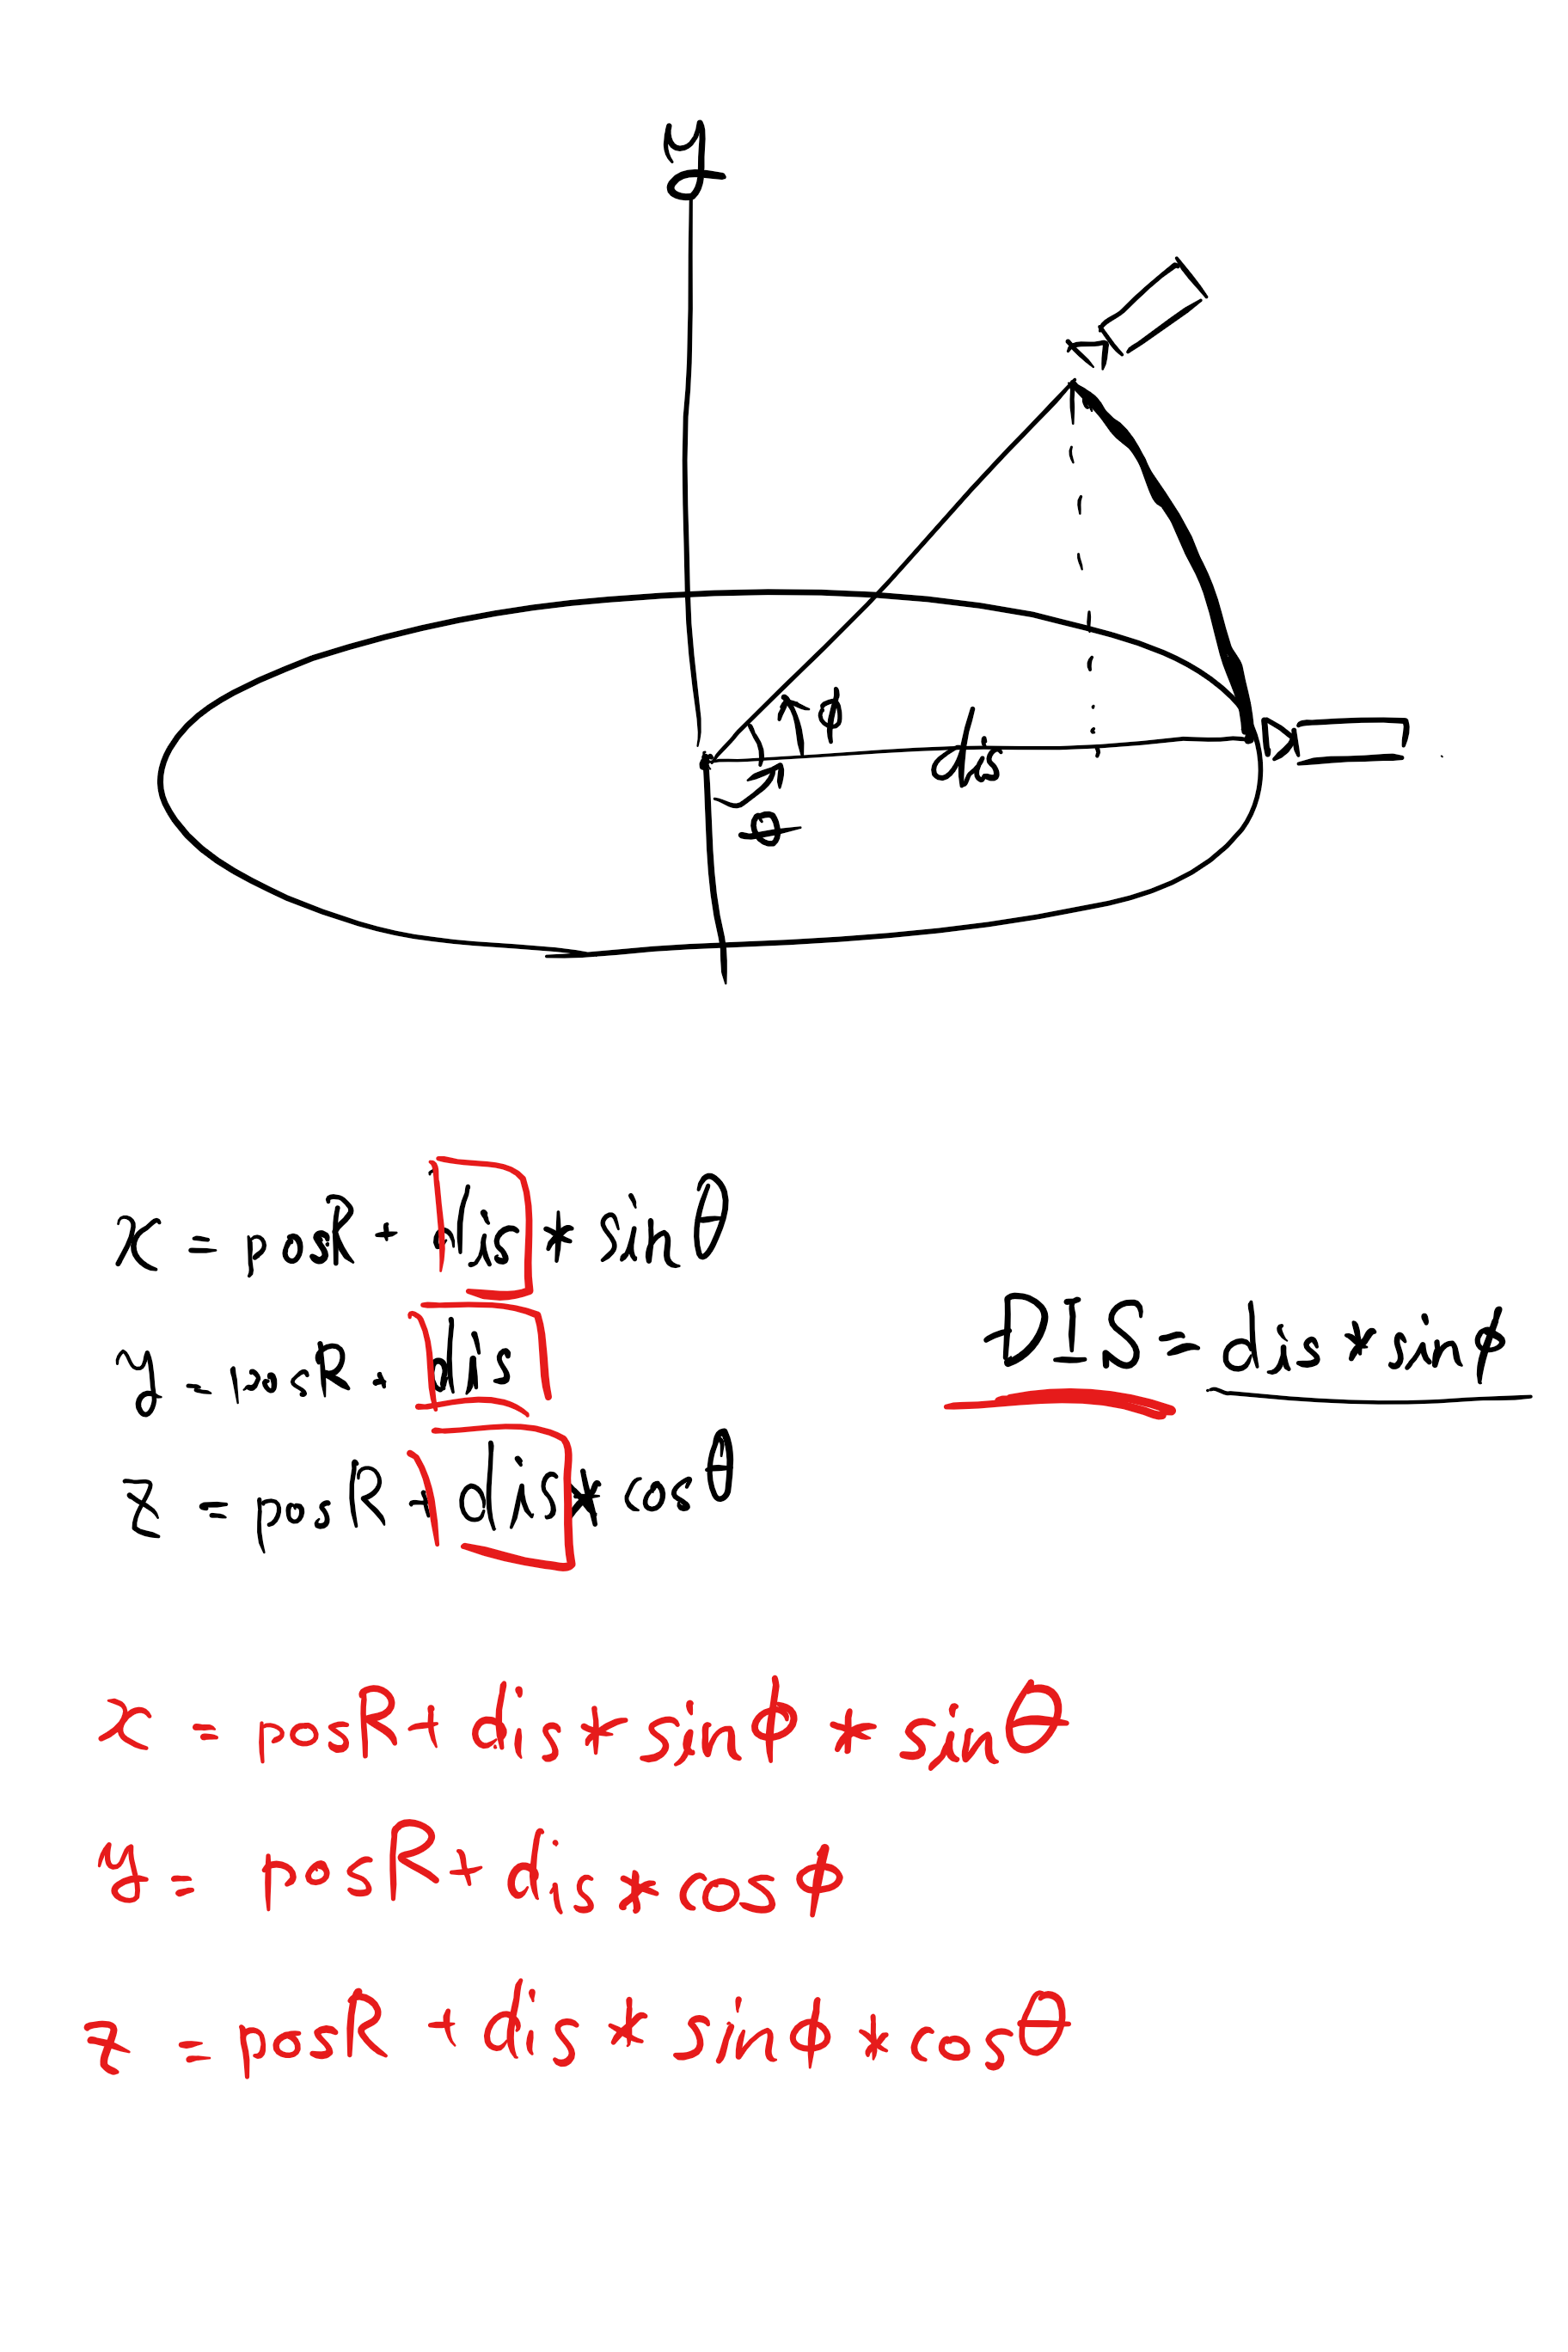 y
ϕ
dis
θ
x = posR + dis * sinθ
y = posR + dis
z = posR + dis * cosθ
DIS = dis * sinϕ
x = posR + dis * sinϕ * sinθ
y = posR + dis * cosϕ
z = posR + dis * sinϕ * cosθ